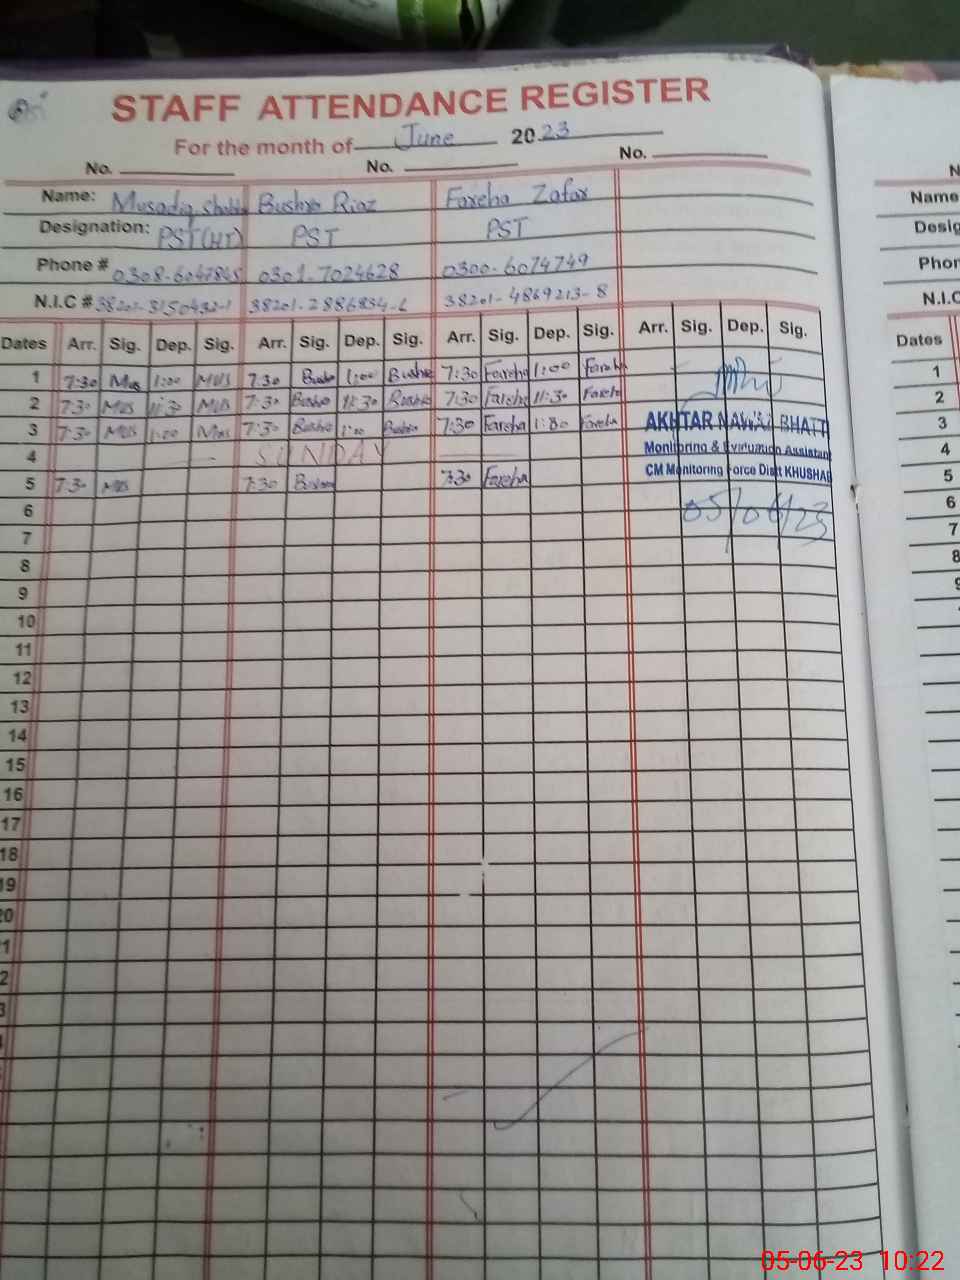 STAFF ATTENDANCE REGISTER
For the month of June 2023
No. No. No.
Name: Musadiq Bushra Riaz Fareha Zafar
Designation: PST(HT) PST PST
Phone # 0308-6047845 0301-7024628 0300-6074749
N.I.C # 38201-3150432-1 38201-2886834-6 38201-4869213-8
Dates Arr. Sig. Dep. Sig. Arr. Sig. Dep. Sig. Arr. Sig. Dep. Sig. Arr. Sig. Dep. Sig.
1 7:30 Mus 1:00 MUS 7:30 Bushra 1:00 Bushra 7:30 Fareha 1:00 Fareha
2 7:30 MUS 11:30 MUS 7:30 Bushra 11:30 Bushra 7:30 Fareha 11:30 Fareha
3 7:30 MUS 1:00 Mus 7:30 Bushra 1:00 Bushra 7:30 Fareha 1:00 Fareha AKHTAR NAWAZ BHATTI
4 SUNDAY Monitoring & Evaluation Assistant
CM Monitoring Force Distt KHUSHAB
5 7:30 MUS 7:30 Bushra 7:30 Fareha
6 05/06/23
7
8
9
10
11
12
13
14
15
16
17
18
19
20
Name
Phon
N.I.C
Dates
1
2
3
4
5
6
7
8
9
05-06-23 10:22